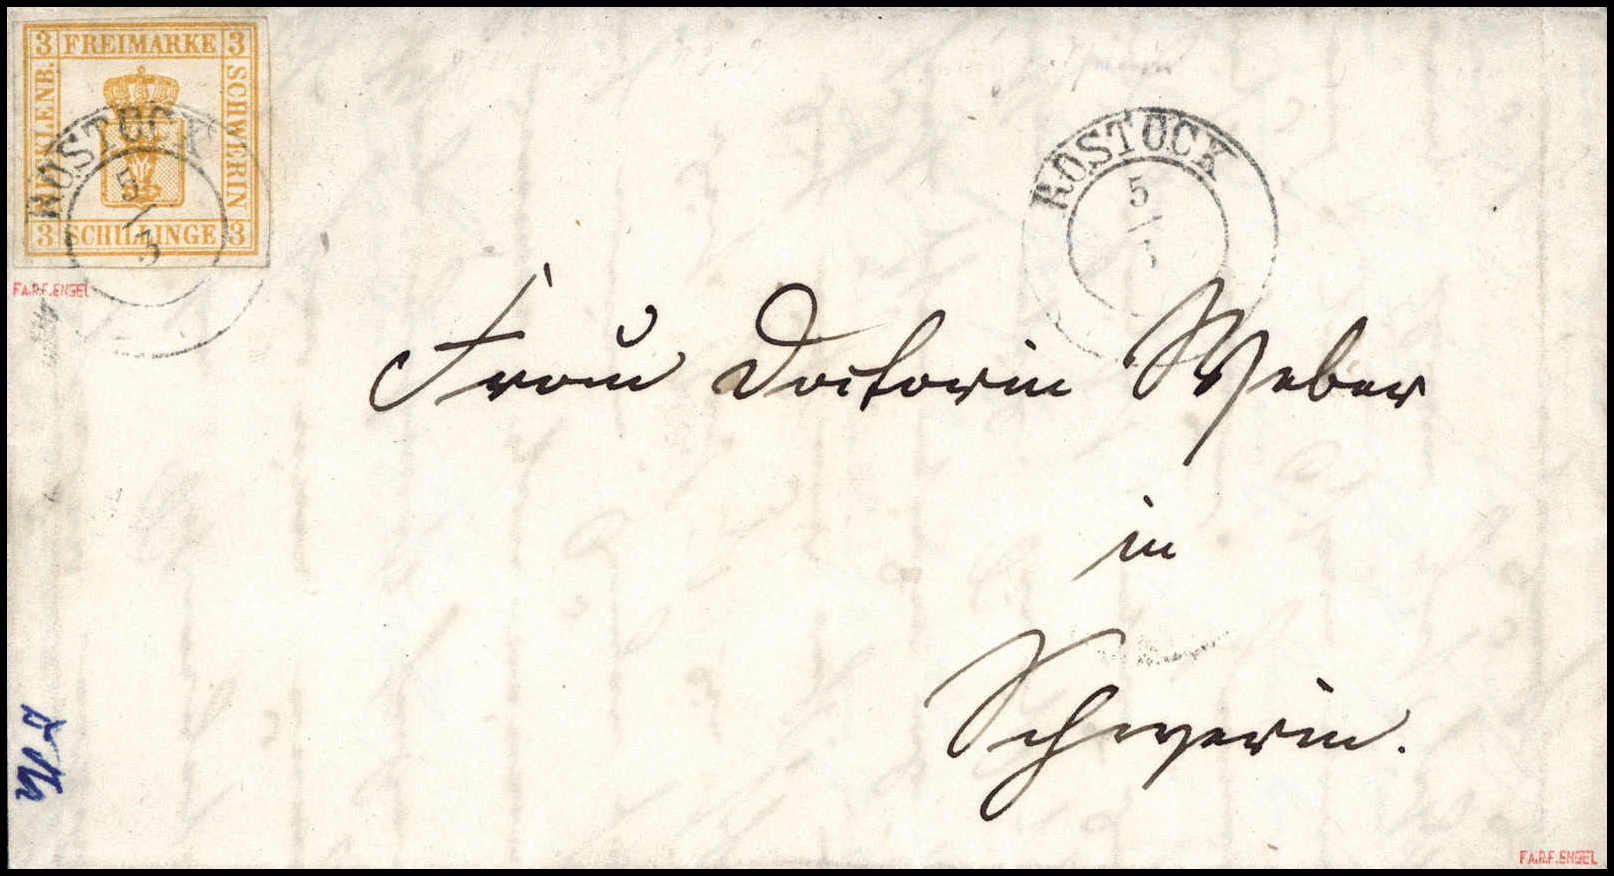 3 FREIMARKE 3
MECKLENB.
SCHWERIN
3 SCHILLINGE 3
ROSTOCK
5/3
ROSTOCK
5
FA.R.F.ENGEL
Frau Doctorin Weber
in
Schwerin.
FA.R.F.ENGEL